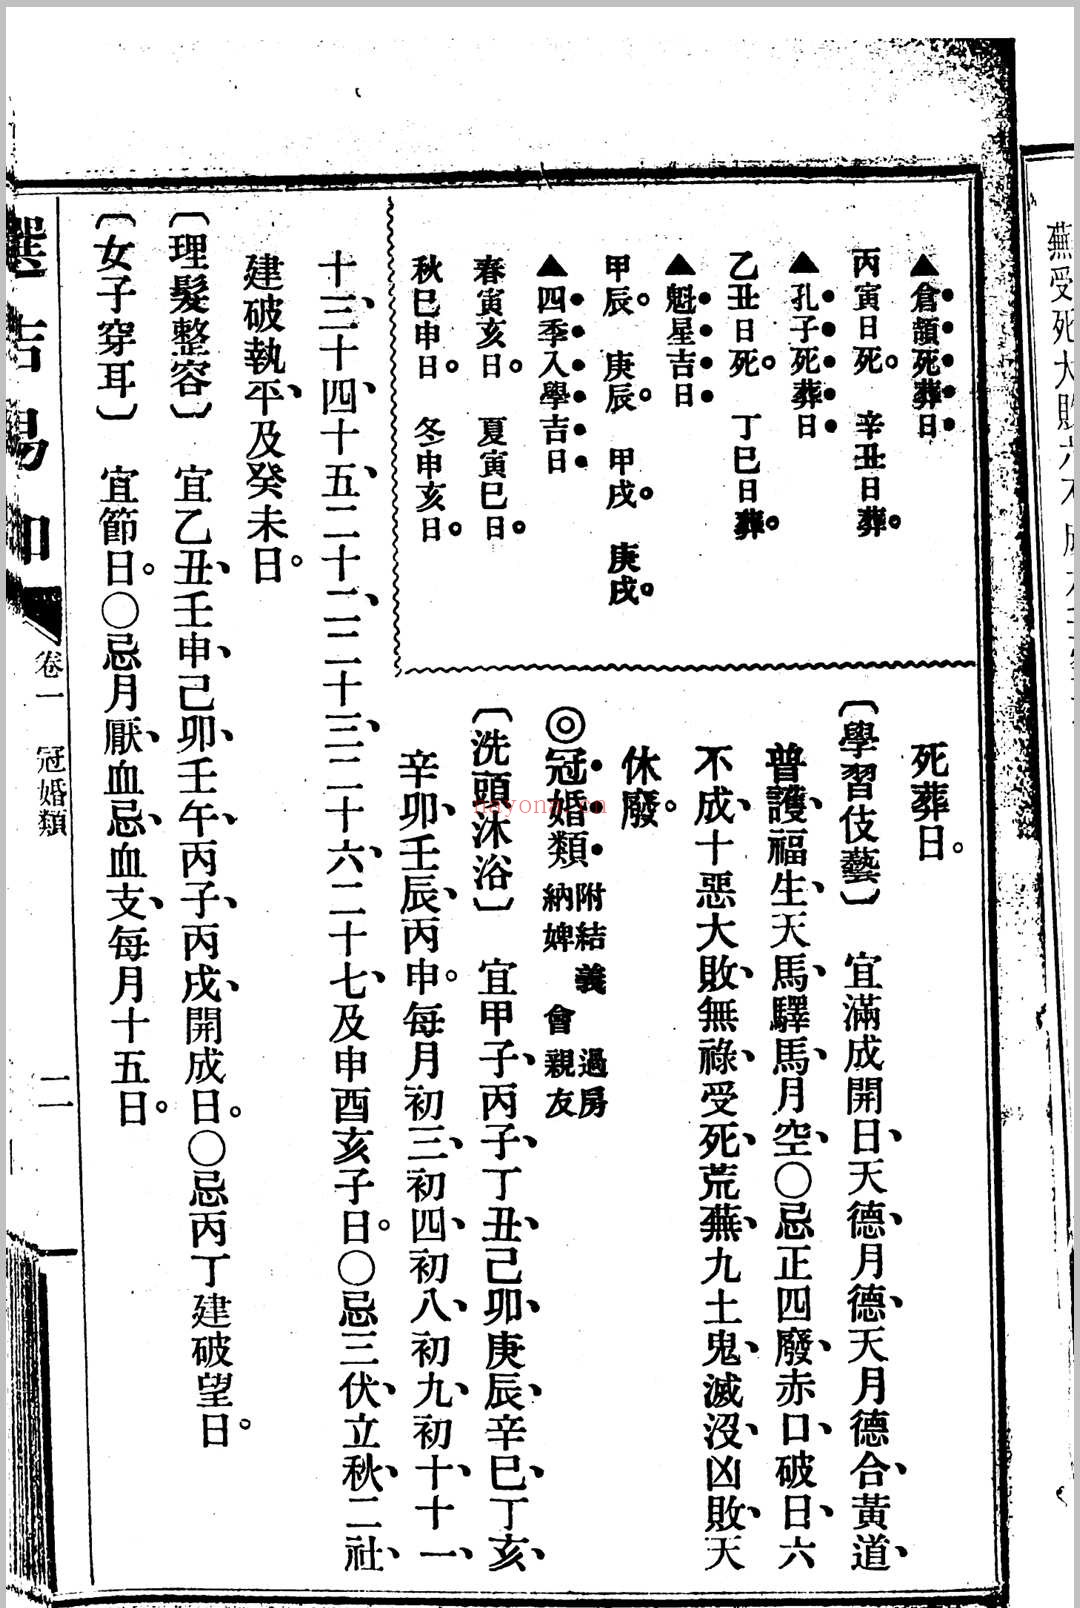 ▲倉頡死葬日
丙寅日死。　辛丑日葬。
▲孔子死葬日
乙丑日死。　丁巳日葬。
▲魁星吉日
甲辰。　庚辰。　甲戌。　庚戌。
▲四季入學吉日
春寅亥日。　夏寅巳日。
秋巳申日。　冬申亥日。
死葬日。
〔學習伎藝〕　宜滿成開日、天德、月德、天月德合、黃道、
普護、福生、天馬、驛馬、月空、〇忌正四廢、赤口、破日、六
不成、十惡大敗、無祿、受死、荒蕪、九土鬼、滅沒、凶敗、天
休廢。
◎冠婚類 附結義　過房
納婢　會親友
〔洗頭沐浴〕　宜甲子、丙子、丁丑、己卯、庚辰、辛巳、丁亥、
辛卯、壬辰、丙申。每月初三、初四、初八、初九、初十、十一、
十三、十四、十五、二十二、二十三、二十六、二十七、及申酉亥子日。〇忌三伏、立秋、二社、
建破執平、及癸未日。
〔理髮整容〕　宜乙丑、壬申、己卯、壬午、丙子、丙戌、開成日。〇忌丙丁建破望日。
〔女子穿耳〕　宜節日。〇忌月厭、血忌、血支、每月十五日。
選吉易知
卷一　冠婚類
二
nayona.cn